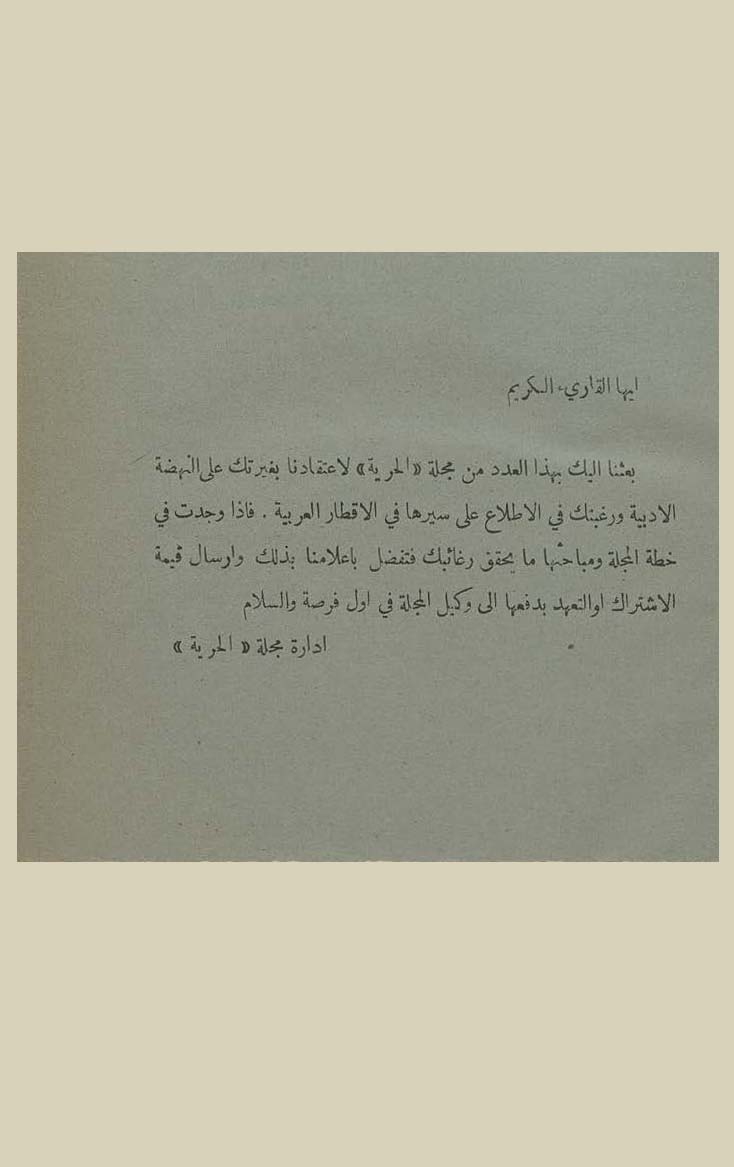 ايها القاريء الكريم
بعثنا اليك بهذا العدد من مجلة «الحرية» لاعتقادنا بغيرتك على النهضة
الادبية ورغبتك في الاطلاع على سيرها في الاقطار العربية . فاذا وجدت في
خطة المجلة ومباحثها ما يحقق رغائبك فتفضل باعلامنا بذلك وارسال قيمة
الاشتراك اوالتعهد بدفعها الى وكيل المجلة في اول فرصة والسلام
ادارة مجلة « الحرية »